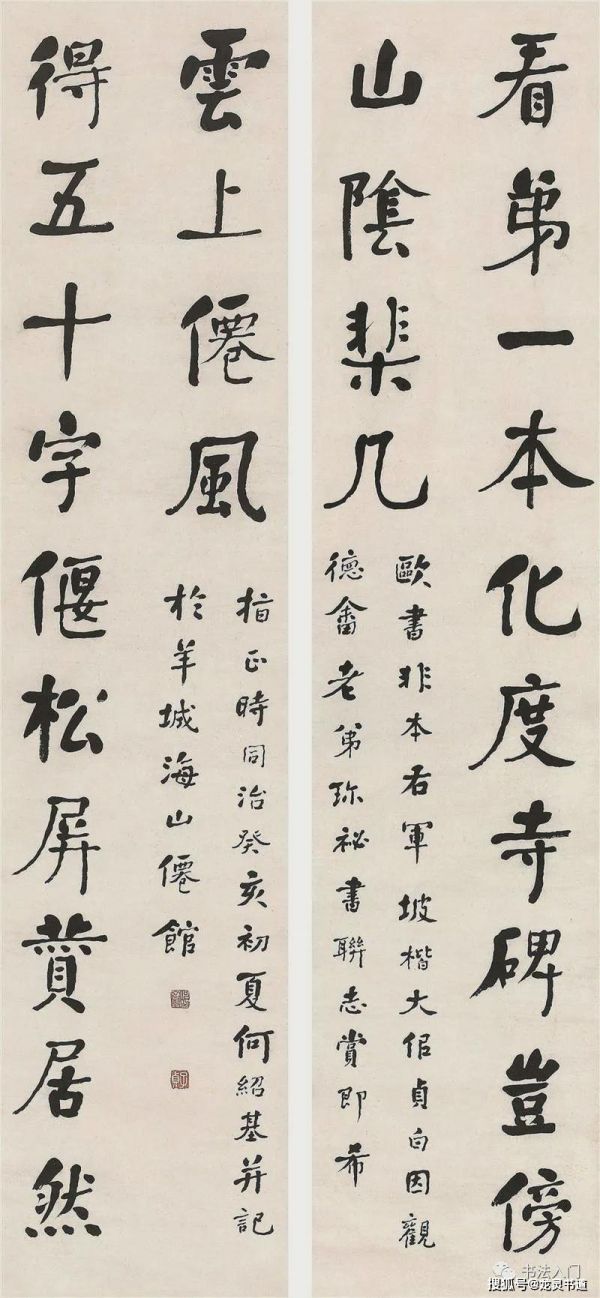 看第一本化度寺碑豈傍
山陰棐几
歐書非本右軍坡楷大佀貞白因觀
德畬老弟珎祕書聯志賞即希
得五十字偃松屏贊居然
雲上僊風
指正時同治癸亥初夏何紹基并記
於羊城海山僊館
书法入门
搜狐号@龙灵书道